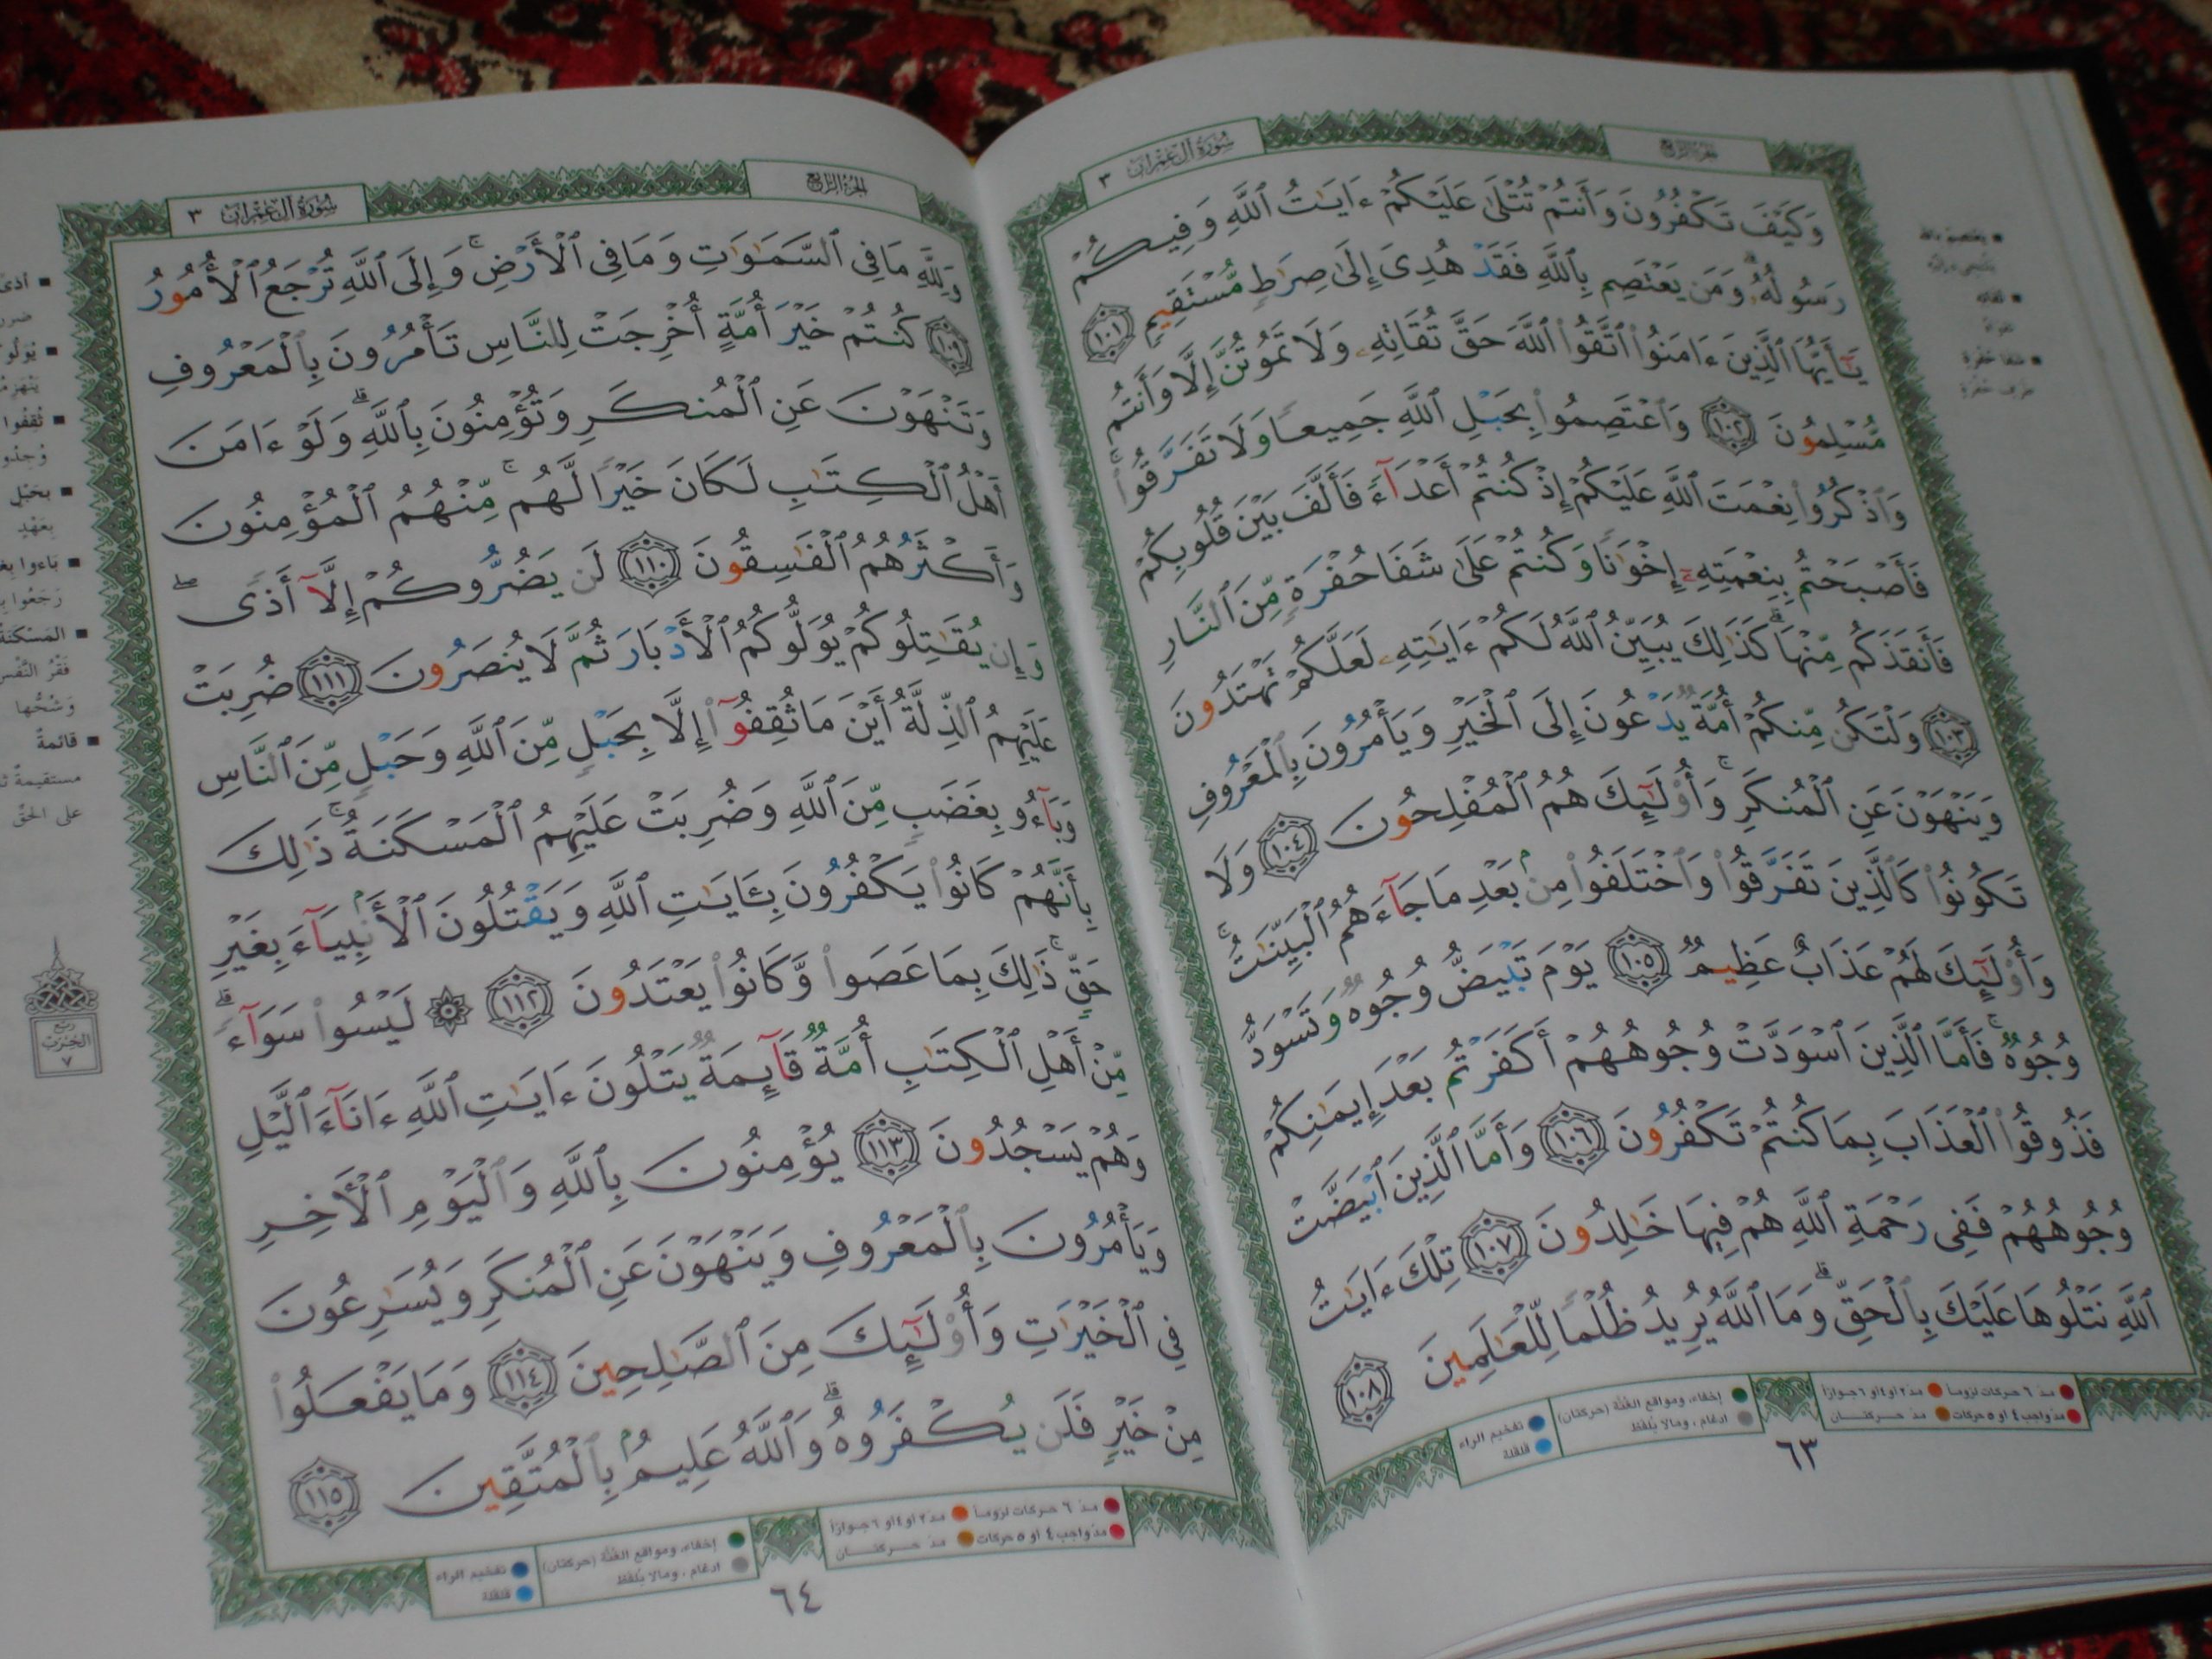 سورة آل عمران ٣
الجزء الرابع
وَكَيْفَ تَكْفُرُونَ وَأَنتُمْ تُتْلَىٰ عَلَيْكُمْ ءَايَـٰتُ ٱللَّهِ وَفِيكُمْ
رَسُولُهُۥ ۗ وَمَن يَعْتَصِم بِٱللَّهِ فَقَدْ هُدِىَ إِلَىٰ صِرَٰطٍ مُّسْتَقِيمٍ ١٠١
يَـٰٓأَيُّهَا ٱلَّذِينَ ءَامَنُوا۟ ٱتَّقُوا۟ ٱللَّهَ حَقَّ تُقَاتِهِۦ وَلَا تَمُوتُنَّ إِلَّا وَأَنتُم
مُّسْلِمُونَ ١٠٢ وَٱعْتَصِمُوا۟ بِحَبْلِ ٱللَّهِ جَمِيعًا وَلَا تَفَرَّقُوا۟ ۚ
وَٱذْكُرُوا۟ نِعْمَتَ ٱللَّهِ عَلَيْكُمْ إِذْ كُنتُمْ أَعْدَآءً فَأَلَّفَ بَيْنَ قُلُوبِكُمْ
فَأَصْبَحْتُم بِنِعْمَتِهِۦٓ إِخْوَٰنًا وَكُنتُمْ عَلَىٰ شَفَا حُفْرَةٍ مِّنَ ٱلنَّارِ
فَأَنقَذَكُم مِّنْهَا ۗ كَذَٰلِكَ يُبَيِّنُ ٱللَّهُ لَكُمْ ءَايَـٰتِهِۦ لَعَلَّكُمْ تَهْتَدُونَ
١٠٣ وَلْتَكُن مِّنكُمْ أُمَّةٌ يَدْعُونَ إِلَى ٱلْخَيْرِ وَيَأْمُرُونَ بِٱلْمَعْرُوفِ
وَيَنْهَوْنَ عَنِ ٱلْمُنكَرِ ۚ وَأُو۟لَـٰٓئِكَ هُمُ ٱلْمُفْلِحُونَ ١٠٤ وَلَا
تَكُونُوا۟ كَٱلَّذِينَ تَفَرَّقُوا۟ وَٱخْتَلَفُوا۟ مِنۢ بَعْدِ مَا جَآءَهُمُ ٱلْبَيِّنَـٰتُ ۚ
وَأُو۟لَـٰٓئِكَ لَهُمْ عَذَابٌ عَظِيمٌ ١٠٥ يَوْمَ تَبْيَضُّ وُجُوهٌ وَتَسْوَدُّ
وُجُوهٌ ۚ فَأَمَّا ٱلَّذِينَ ٱسْوَدَّتْ وُجُوهُهُمْ أَكَفَرْتُم بَعْدَ إِيمَـٰنِكُمْ
فَذُوقُوا۟ ٱلْعَذَابَ بِمَا كُنتُمْ تَكْفُرُونَ ١٠٦ وَأَمَّا ٱلَّذِينَ ٱبْيَضَّتْ
وُجُوهُهُمْ فَفِى رَحْمَةِ ٱللَّهِ هُمْ فِيهَا خَـٰلِدُونَ ١٠٧ تِلْكَ ءَايَـٰتُ
ٱللَّهِ نَتْلُوهَا عَلَيْكَ بِٱلْحَقِّ ۗ وَمَا ٱللَّهُ يُرِيدُ ظُلْمًا لِّلْعَـٰلَمِينَ ١٠٨
مدّ ٦ حركات لزوماً مدّ ٢ او ٤ او ٦ جوازاً
مدّ واجب ٤ او ٥ حركات مدّ حركتان
إخفاء، ومواقع الغُنَّة (حركتان)
ادغام، ومالا يُلفَظ
تفخيم الراء
قلقلة
٦٣
الجزء الرابع
سورة آل عمران ٣
وَلِلَّهِ مَا فِى ٱلسَّمَـٰوَٰتِ وَمَا فِى ٱلْأَرْضِ ۚ وَإِلَى ٱللَّهِ تُرْجَعُ ٱلْأُمُورُ
١٠٩ كُنتُمْ خَيْرَ أُمَّةٍ أُخْرِجَتْ لِلنَّاسِ تَأْمُرُونَ بِٱلْمَعْرُوفِ
وَتَنْهَوْنَ عَنِ ٱلْمُنكَرِ وَتُؤْمِنُونَ بِٱللَّهِ ۗ وَلَوْ ءَامَنَ
أَهْلُ ٱلْكِتَـٰبِ لَكَانَ خَيْرًا لَّهُم ۚ مِّنْهُمُ ٱلْمُؤْمِنُونَ
وَأَكْثَرُهُمُ ٱلْفَـٰسِقُونَ ١١٠ لَن يَضُرُّوكُمْ إِلَّآ أَذًى ۖ
وَإِن يُقَـٰتِلُوكُمْ يُوَلُّوكُمُ ٱلْأَدْبَارَ ثُمَّ لَا يُنصَرُونَ ١١١ ضُرِبَتْ
عَلَيْهِمُ ٱلذِّلَّةُ أَيْنَ مَا ثُقِفُوٓا۟ إِلَّا بِحَبْلٍ مِّنَ ٱللَّهِ وَحَبْلٍ مِّنَ ٱلنَّاسِ
وَبَآءُو بِغَضَبٍ مِّنَ ٱللَّهِ وَضُرِبَتْ عَلَيْهِمُ ٱلْمَسْكَنَةُ ۚ ذَٰلِكَ
بِأَنَّهُمْ كَانُوا۟ يَكْفُرُونَ بِـَٔايَـٰتِ ٱللَّهِ وَيَقْتُلُونَ ٱلْأَنۢبِيَآءَ بِغَيْرِ
حَقٍّ ۚ ذَٰلِكَ بِمَا عَصَوا۟ وَّكَانُوا۟ يَعْتَدُونَ ١١٢ ۞ لَيْسُوا۟ سَوَآءً ۗ
مِّنْ أَهْلِ ٱلْكِتَـٰبِ أُمَّةٌ قَآئِمَةٌ يَتْلُونَ ءَايَـٰتِ ٱللَّهِ ءَانَآءَ ٱلَّيْلِ
وَهُمْ يَسْجُدُونَ ١١٣ يُؤْمِنُونَ بِٱللَّهِ وَٱلْيَوْمِ ٱلْأَخِرِ
وَيَأْمُرُونَ بِٱلْمَعْرُوفِ وَيَنْهَوْنَ عَنِ ٱلْمُنكَرِ وَيُسَـٰرِعُونَ
فِى ٱلْخَيْرَٰتِ وَأُو۟لَـٰٓئِكَ مِنَ ٱلصَّـٰلِحِينَ ١١٤ وَمَا يَفْعَلُوا۟
مِنْ خَيْرٍ فَلَن يُكْفَرُوهُ ۗ وَٱللَّهُ عَلِيمٌۢ بِٱلْمُتَّقِينَ ١١٥
مدّ ٦ حركات لزوماً مدّ ٢ او ٤ او ٦ جوازاً
مدّ واجب ٤ او ٥ حركات مدّ حركتان
إخفاء، ومواقع الغُنَّة (حركتان)
ادغام، ومالا يُلفَظ
تفخيم الراء
قلقلة
٦٤
ثُقِفُوا
بحَبْلٍ
بِعَهْدٍ
المَسْكَنَةُ
فَقْرُ النَّفْسِ
وَشُحُّها
قائمةٌ
مستقيمةٌ
على الحقّ
ربع
الحزب
٧